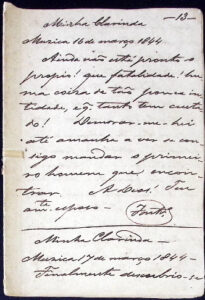 —13—
Minha Clarinda
Muzica 16 de março 1844.
Ainda não está prompto o
proprio! que fatalidade! hu
ma coiza de tão pouca en
tidade, e q tanto tem custa
do! Demorar-me-hei
até amanhã a ver se con
sigo mandar o primei
ro homem que encon
trar. A Deos! Teu
am. esposo—
Minha Clarinda—
Muzica 17 de março 1844—
Finalmente descubrio-se